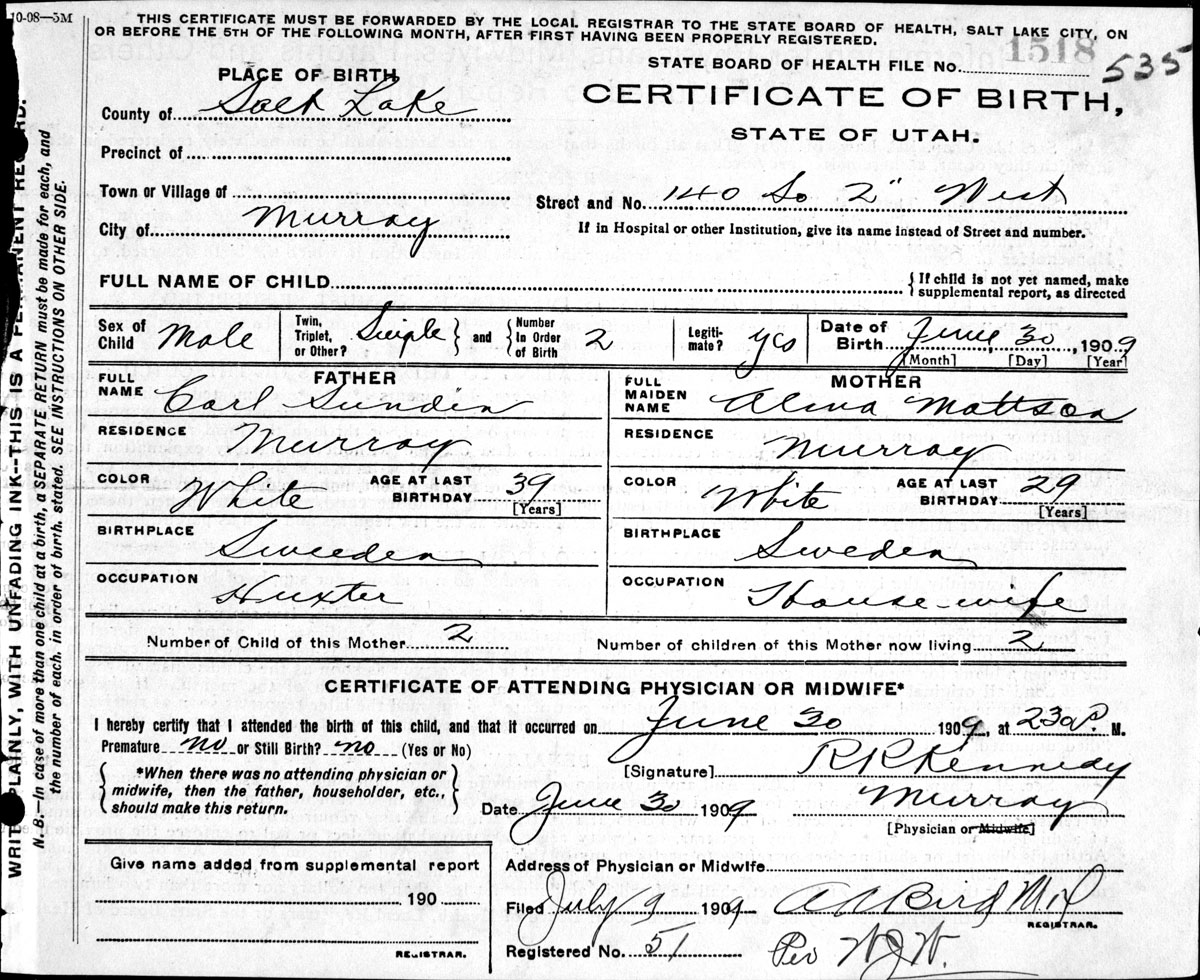 10-08—5M
THIS CERTIFICATE MUST BE FORWARDED BY THE LOCAL REGISTRAR TO THE STATE BOARD OF HEALTH, SALT LAKE CITY, ON
OR BEFORE THE 5TH OF THE FOLLOWING MONTH, AFTER FIRST HAVING BEEN PROPERLY REGISTERED.
STATE BOARD OF HEALTH FILE No. 1518 535
PLACE OF BIRTH
CERTIFICATE OF BIRTH,
STATE OF UTAH.
County of Salt Lake
Precinct of
Town or Village of
Street and No. 140 So 2" West
City of Murray
If in Hospital or other Institution, give its name instead of Street and number.
FULL NAME OF CHILD
{If child is not yet named, make
supplemental report, as directed
Sex of Child Male
Twin, Triplet, or Other? Single } and { Number in Order of Birth 2
Legiti-mate? yes
Date of Birth June 30, 1909
[Month] [Day] [Year]
FATHER
FULL NAME Carl Sundin
RESIDENCE Murray
COLOR White AGE AT LAST BIRTHDAY 39
[Years]
BIRTHPLACE Sweeden
OCCUPATION Huxter
MOTHER
FULL MAIDEN NAME Alma Mattson
RESIDENCE Murray
COLOR White AGE AT LAST BIRTHDAY 29
[Years]
BIRTHPLACE Sweden
OCCUPATION House-wife
Number of Child of this Mother 2
Number of children of this Mother now living 2
CERTIFICATE OF ATTENDING PHYSICIAN OR MIDWIFE*
I hereby certify that I attended the birth of this child, and that it occurred on June 30 1909, at P. M.
Premature no or Still Birth? no (Yes or No)
[Signature] R R Kennedy
{*When there was no attending physician or
midwife, then the father, householder, etc.,
should make this return.}
Date June 30 1909 Murray
[Physician or Midwife]
Give name added from supplemental report
190
REGISTRAR.
Address of Physician or Midwife
Filed July 9 1909 Bird M.D
REGISTRAR.
Registered No. 51 Per W.J.W.
WRITE PLAINLY, WITH UNFADING INK--THIS IS A PERMANENT RECORD.
N. B.—In case of more than one child at a birth, a SEPARATE RETURN must be made for each, and
the number of each, in order of birth, stated. SEE INSTRUCTIONS ON OTHER SIDE.